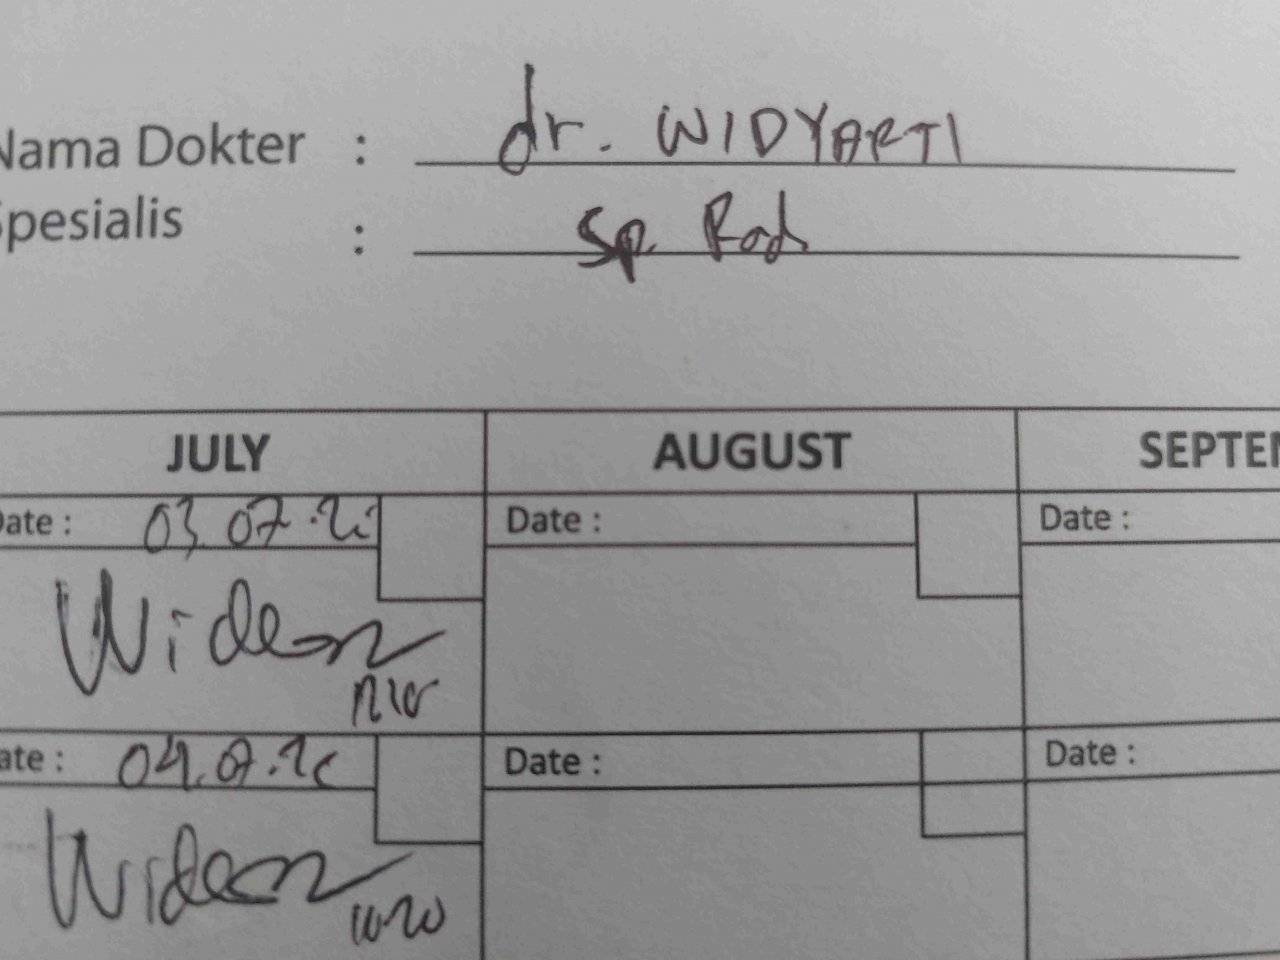 Nama Dokter : dr. WIDYARTI
Spesialis : Sp. Rad
JULY AUGUST SEPTEM
Date : 03.07. Date : Date :
Date : 04.07. Date : Date :